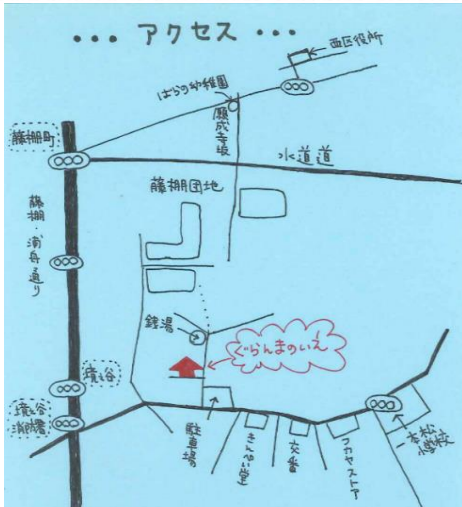 ••• アクセス •••
西区役所
ばらの幼稚園
願成寺坂
藤棚町
水道道
藤棚団地
藤棚・浦舟通り
銭湯
ぐらんまのいえ
境之谷
境之谷消防署
駐車場
きんせい堂
交番
フカヤストア
一本松小学校